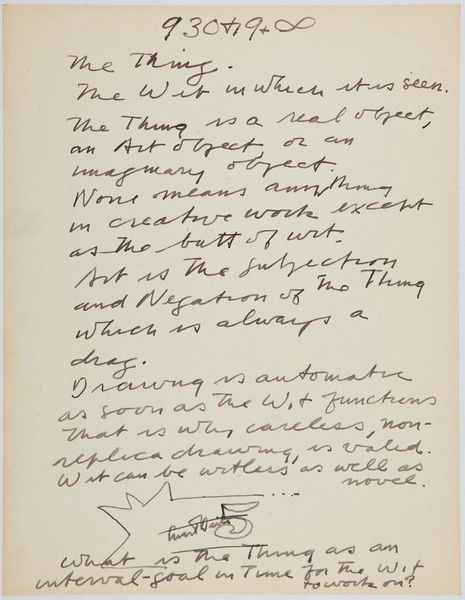 930 + 9 + ∞
The Thing.
The Wit in which it is seen.
The Thing is a real object,
an Art object, or an
imaginary object.
None means anything
in creative work except
as the butt of wit.
Art is the subjection
and Negation of the Thing
which is always a
drag.
Drawing is automatic
as soon as the Wit functions
That is why careless, non-
replica drawing, is valid.
Wit can be witless as well as
novel.
...
Stuart Davis
What is the Thing as an
interval-goal in Time for the Wit
to work on?